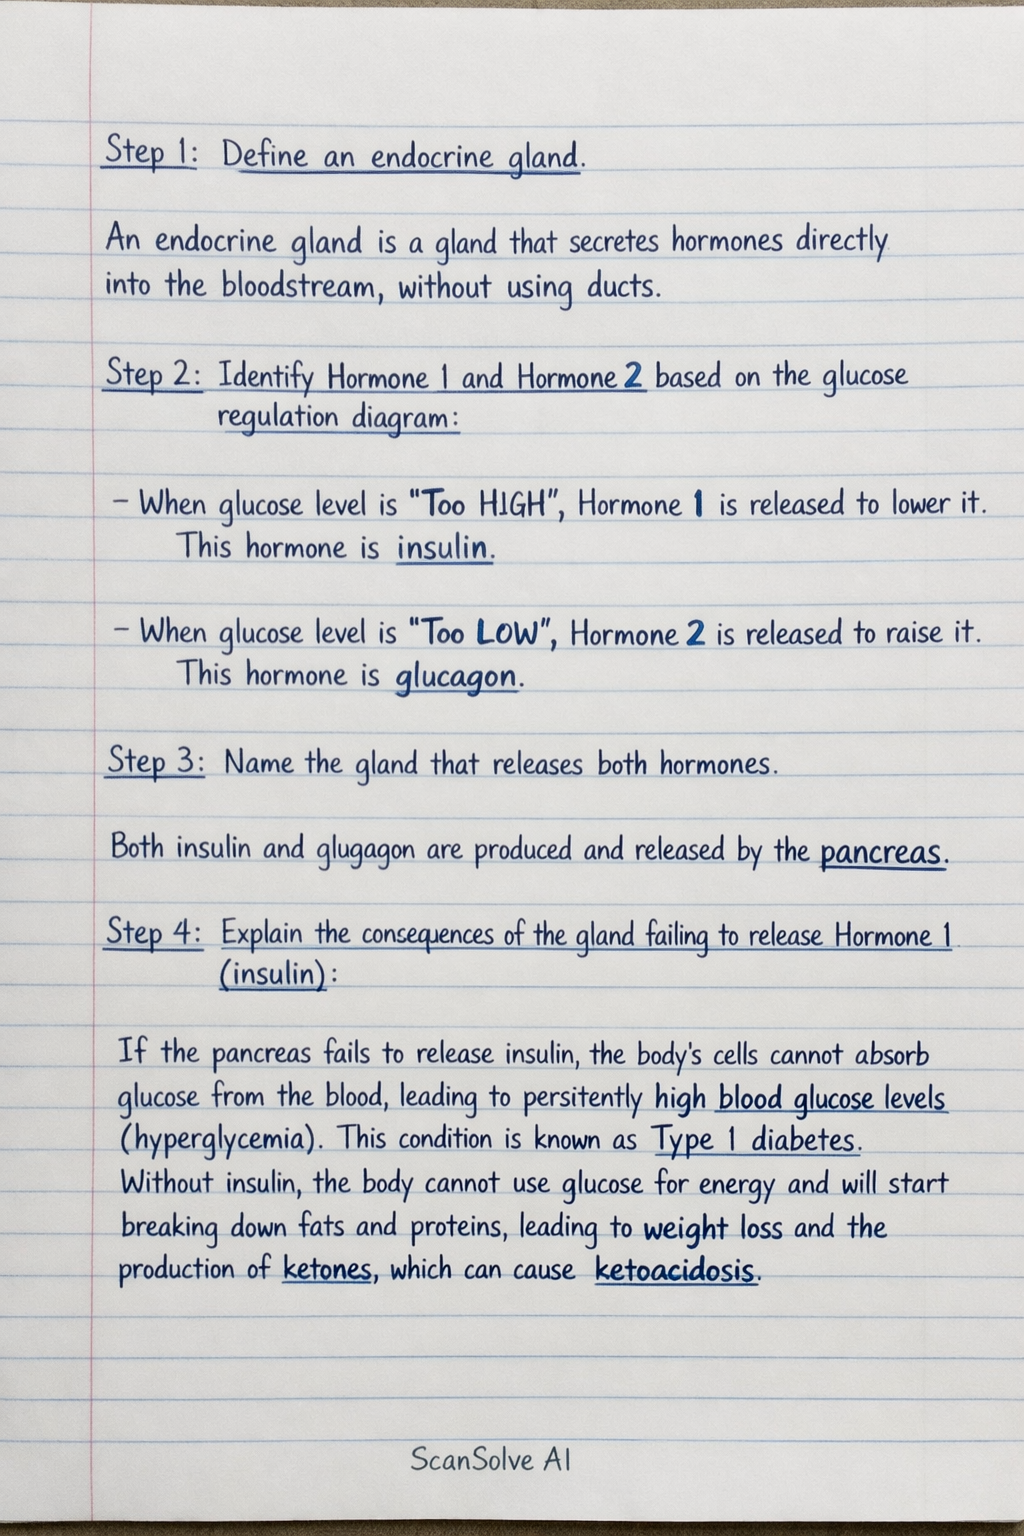 Step 1: Define an endocrine gland.
An endocrine gland is a gland that secretes hormones directly
into the bloodstream, without using ducts.
Step 2: Identify Hormone 1 and Hormone 2 based on the glucose
regulation diagram:
- When glucose level is "Too HIGH", Hormone 1 is released to lower it.
This hormone is insulin.
- When glucose level is "Too LOW", Hormone 2 is released to raise it.
This hormone is glucagon.
Step 3: Name the gland that releases both hormones.
Both insulin and glugagon are produced and released by the pancreas.
Step 4: Explain the consequences of the gland failing to release Hormone 1
(insulin):
If the pancreas fails to release insulin, the body's cells cannot absorb
glucose from the blood, leading to persitently high blood glucose levels
(hyperglycemia). This condition is known as Type 1 diabetes.
Without insulin, the body cannot use glucose for energy and will start
breaking down fats and proteins, leading to weight loss and the
production of ketones, which can cause ketoacidosis.
ScanSolve AI